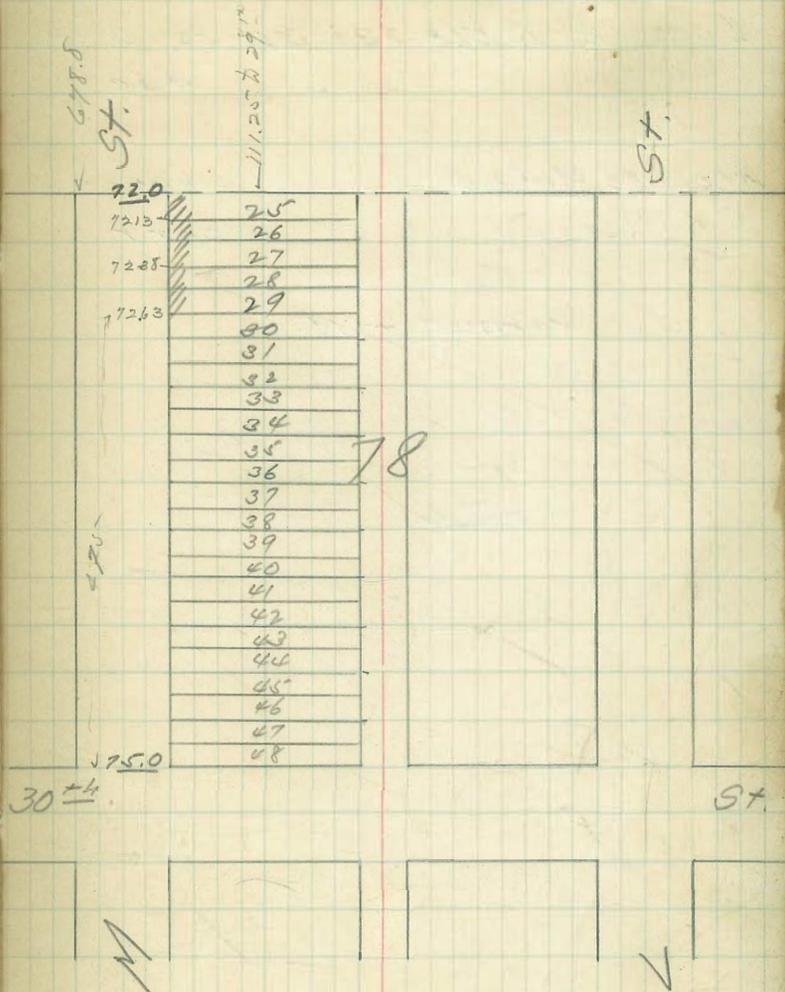 678.8
St.
111.25 to 29th
St.
72.0
7213
7238
7263
25
26
27
28
29
30
31
32
33
34
35
36
37
38
39
40
41
42
43
44
45
46
47
48
18
475
75.0
30th
St.
M
L